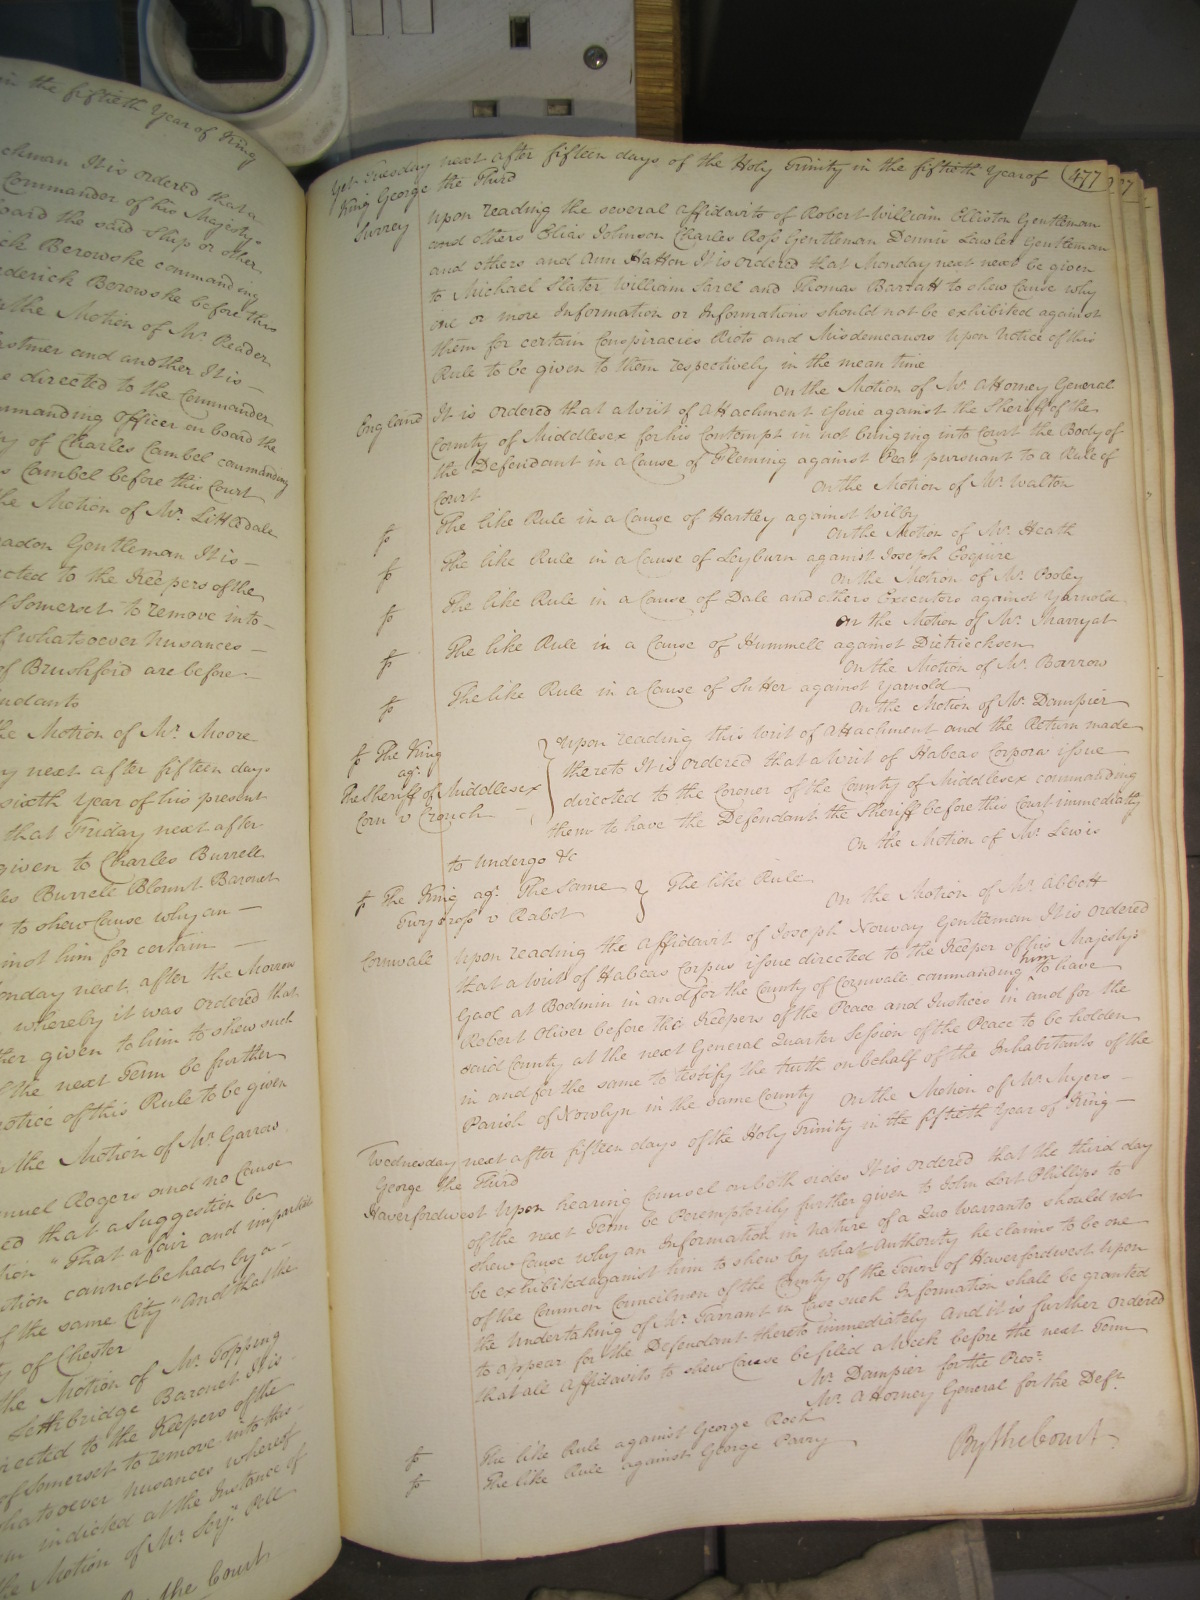 in the fiftieth Year of King
ckman It is ordered that a
Commander of his Majestys
board the said Ship or other
ick Berowske commanding
ederick Berowske before this
the Motion of Mr. Reader
astmer and another It is
e directed to the Commander
mmanding officer on board the
y of Charles Cambel commanding
s Cambel before this Court
the Motion of Mr. Littledale
adon Gentleman It is
ected to the Keepers of the
Somerset to remove into
of whatsoever nusances
of Brushford are before
ndants
he Motion of Mr. Moore
y next after fifteen days
sixth Year of his present
that Friday next after
given to Charles Burrell
les Burrell Blount Baronet
to shew Cause why an
inst him for certain
onday next after the Morrow
whereby it was ordered that
her given to him to shew such
of the next Term be further
notice of this Rule to be given
the Motion of Mr. Garrow
muel Rogers and no Cause
ed that a Suggestion be
tion "That a fair and impartial
ation cannot be had by a
of the same City" And that the
ty of Chester
the Motion of Mr. Topping
Lethbridge Baronet It is
rected to the Keepers of the
of Somerset to remove into this
whatsoever nusances whereof
indicted at the Instance of
the Motion of Mr. Serjt. Pell
By the Court
477
Yet Tuesday next after fifteen days of the Holy Trinity in the fiftieth Year of
King George the Third
Surrey Upon reading the several affidavits of Robert William Elliston Gentleman
and others Elias Johnson Charles Ross Gentleman Dennis Lawler Gentleman
and others and Ann Hatton It is ordered that Monday next next be given
to Michael Slater William Sarel and Thomas Bartatt to shew Cause why
one or more Information or Informations should not be exhibited against
them for certain Conspiracies Riots and Misdemeanors Upon Notice of this
Rule to be given to them respectively in the mean time
On the Motion of Mr. Attorney General
England It is ordered that a Writ of Attachment issue against the Sheriff of the
County of Middlesex for his Contempt in not bringing into Court the Body of
the Defendant in a Cause of Fleming against Peat pursuant to a Rule of
Court On the Motion of Mr. Walton
The like Rule in a Cause of Hartley against Wilby
On the Motion of Mr. Heath
The like Rule in a Cause of Leyburn against Joseph Esquire
On the Motion of Mr. Pooley
The like Rule in a Cause of Dale and others Executors against Yarnold
On the Motion of Mr. Marryat
The like Rule in a Cause of Hummell against Dietricksen
On the Motion of Mr. Barrow
The like Rule in a Cause of Sutter against Yarnold
On the Motion of Mr. Dampier
The King
agt.
The Sheriff of Middlesex
Corn v Crouch
Upon reading this Writ of Attachment and the Return made
thereto It is ordered that a Writ of Habeas Corpora issue
directed to the Coroner of the County of Middlesex commanding
them to have the Defendant the Sheriff before this Court immediately
to undergo &c On the Motion of Mr. Lewis
The King agt. The Same The like Rule
Twycross v Rabot On the Motion of Mr. Abbott
Cornwale Upon reading the affidavit of Joseph Norway Gentleman It is ordered
that a Writ of Habeas Corpus issue directed to the Keeper of his Majesty's
Gaol at Bodmin in and for the County of Cornwale commanding him to have
Robert Oliver before the Keepers of the Peace and Justices in and for the
said County at the next General Quarter Session of the Peace to be holden
in and for the same to testify the truth on behalf of the Inhabitants of the
Parish of Newlyn in the same County On the Motion of Mr. Myers
Wednesday next after fifteen days of the Holy Trinity in the fiftieth Year of King
George the Third
Haverfordwest Upon hearing Counsel on both sides It is ordered that the third day
of the next Term be Peremptorily further given to John Lort Phillips to
shew Cause why an Information in nature of a Quo Warranto should not
be exhibited against him to shew by what Authority he claims to be one
of the Common Councilmen of the County of the Town of Haverfordwest Upon
the undertaking of Mr. Tarrant in Case such Information shale be granted
to appear for the Defendant thereto immediately And it is further ordered
that all Affidavits to shew Cause be filed a Week before the next Term
Mr. Dampier for the Prosr.
Mr. Attorney General for the Deft.
The like Rule against George Roch
The like Rule against George Parry
By the Court